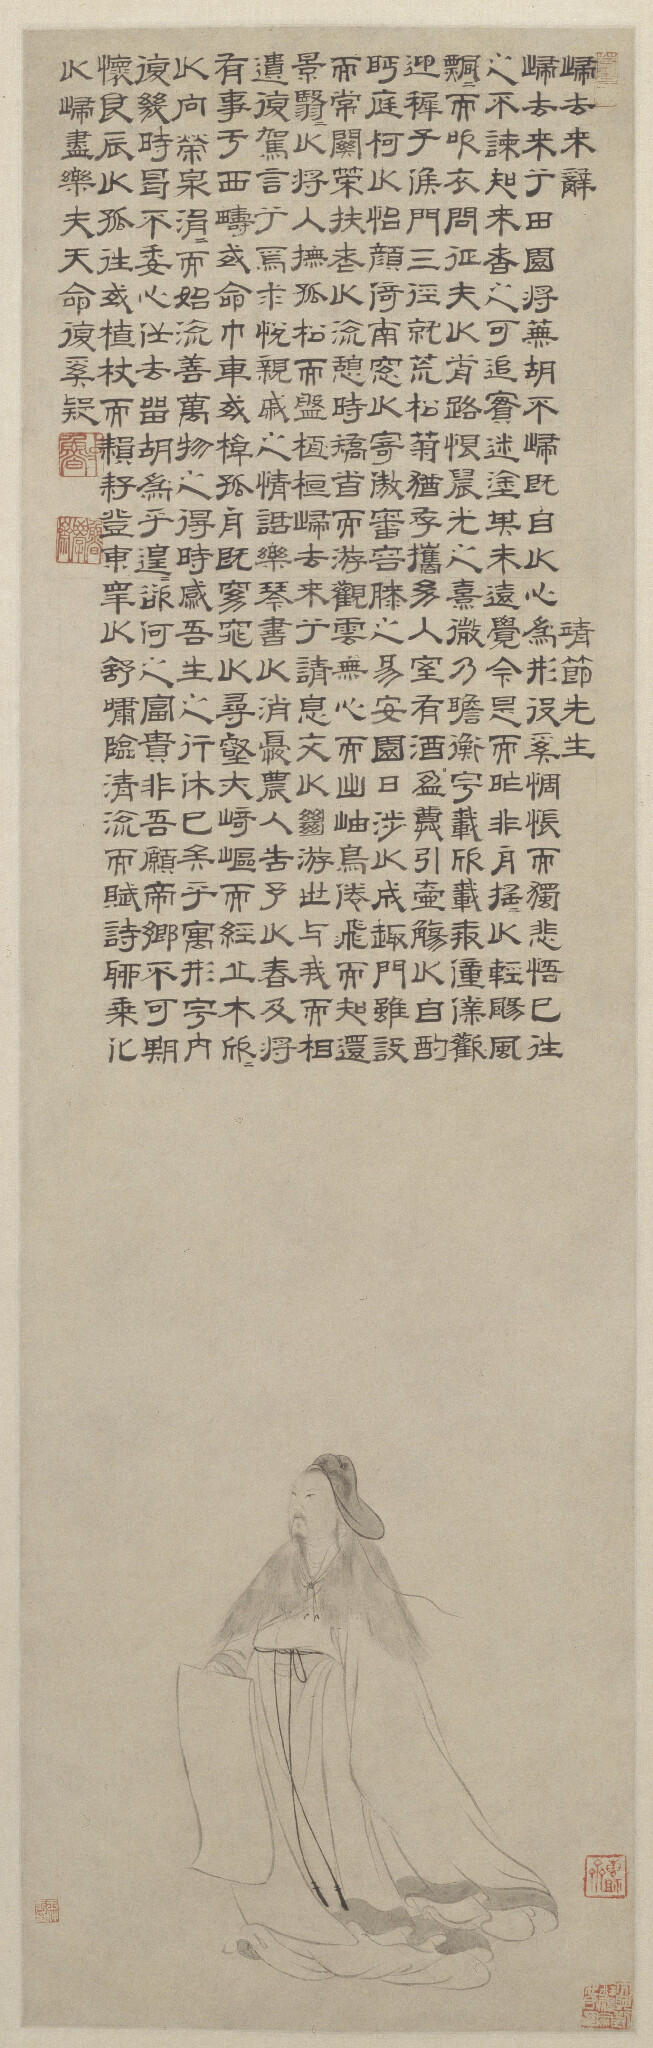 歸去来辭 靖節先生
歸去来兮田園將蕪胡不歸既自以心為形役奚惆悵而獨悲悟已往
之不諫知来者之可追實迷塗其未遠覺今是而昨非舟搖〻以輕颺風
飄〻而吹衣問征夫以前路恨晨光之熹微乃瞻衡宇載欣載奔僮僕歡
迎稚子候門三徑就荒松菊猶存攜幼入室有酒盈樽引壺觴以自酌
眄庭柯以怡顏倚南窓以寄傲審容膝之易安園日涉以成趣門雖設
而常關策扶老以流憩時矯首而游觀雲無心而出岫鳥倦飛而知還
景翳〻以將入撫孤松而盤桓歸去来兮請息交以絕游世与我而相
遺復駕言兮焉求悅親戚之情話樂琴書以消憂農人告予以春及將
有事于西疇或命巾車或棹孤舟既窈窕以尋壑亦崎嶇而經丘木欣〻
以向榮泉涓〻而始流善萬物之得時感吾生之行休已矣乎寓形宇內
復幾時曷不委心任去留胡為乎遑〻欲何之富貴非吾願帝鄉不可期
懷良辰以孤往或植杖而耔登東皋以舒嘯臨清流而賦詩聊乘化
以歸盡樂夫天命復奚疑